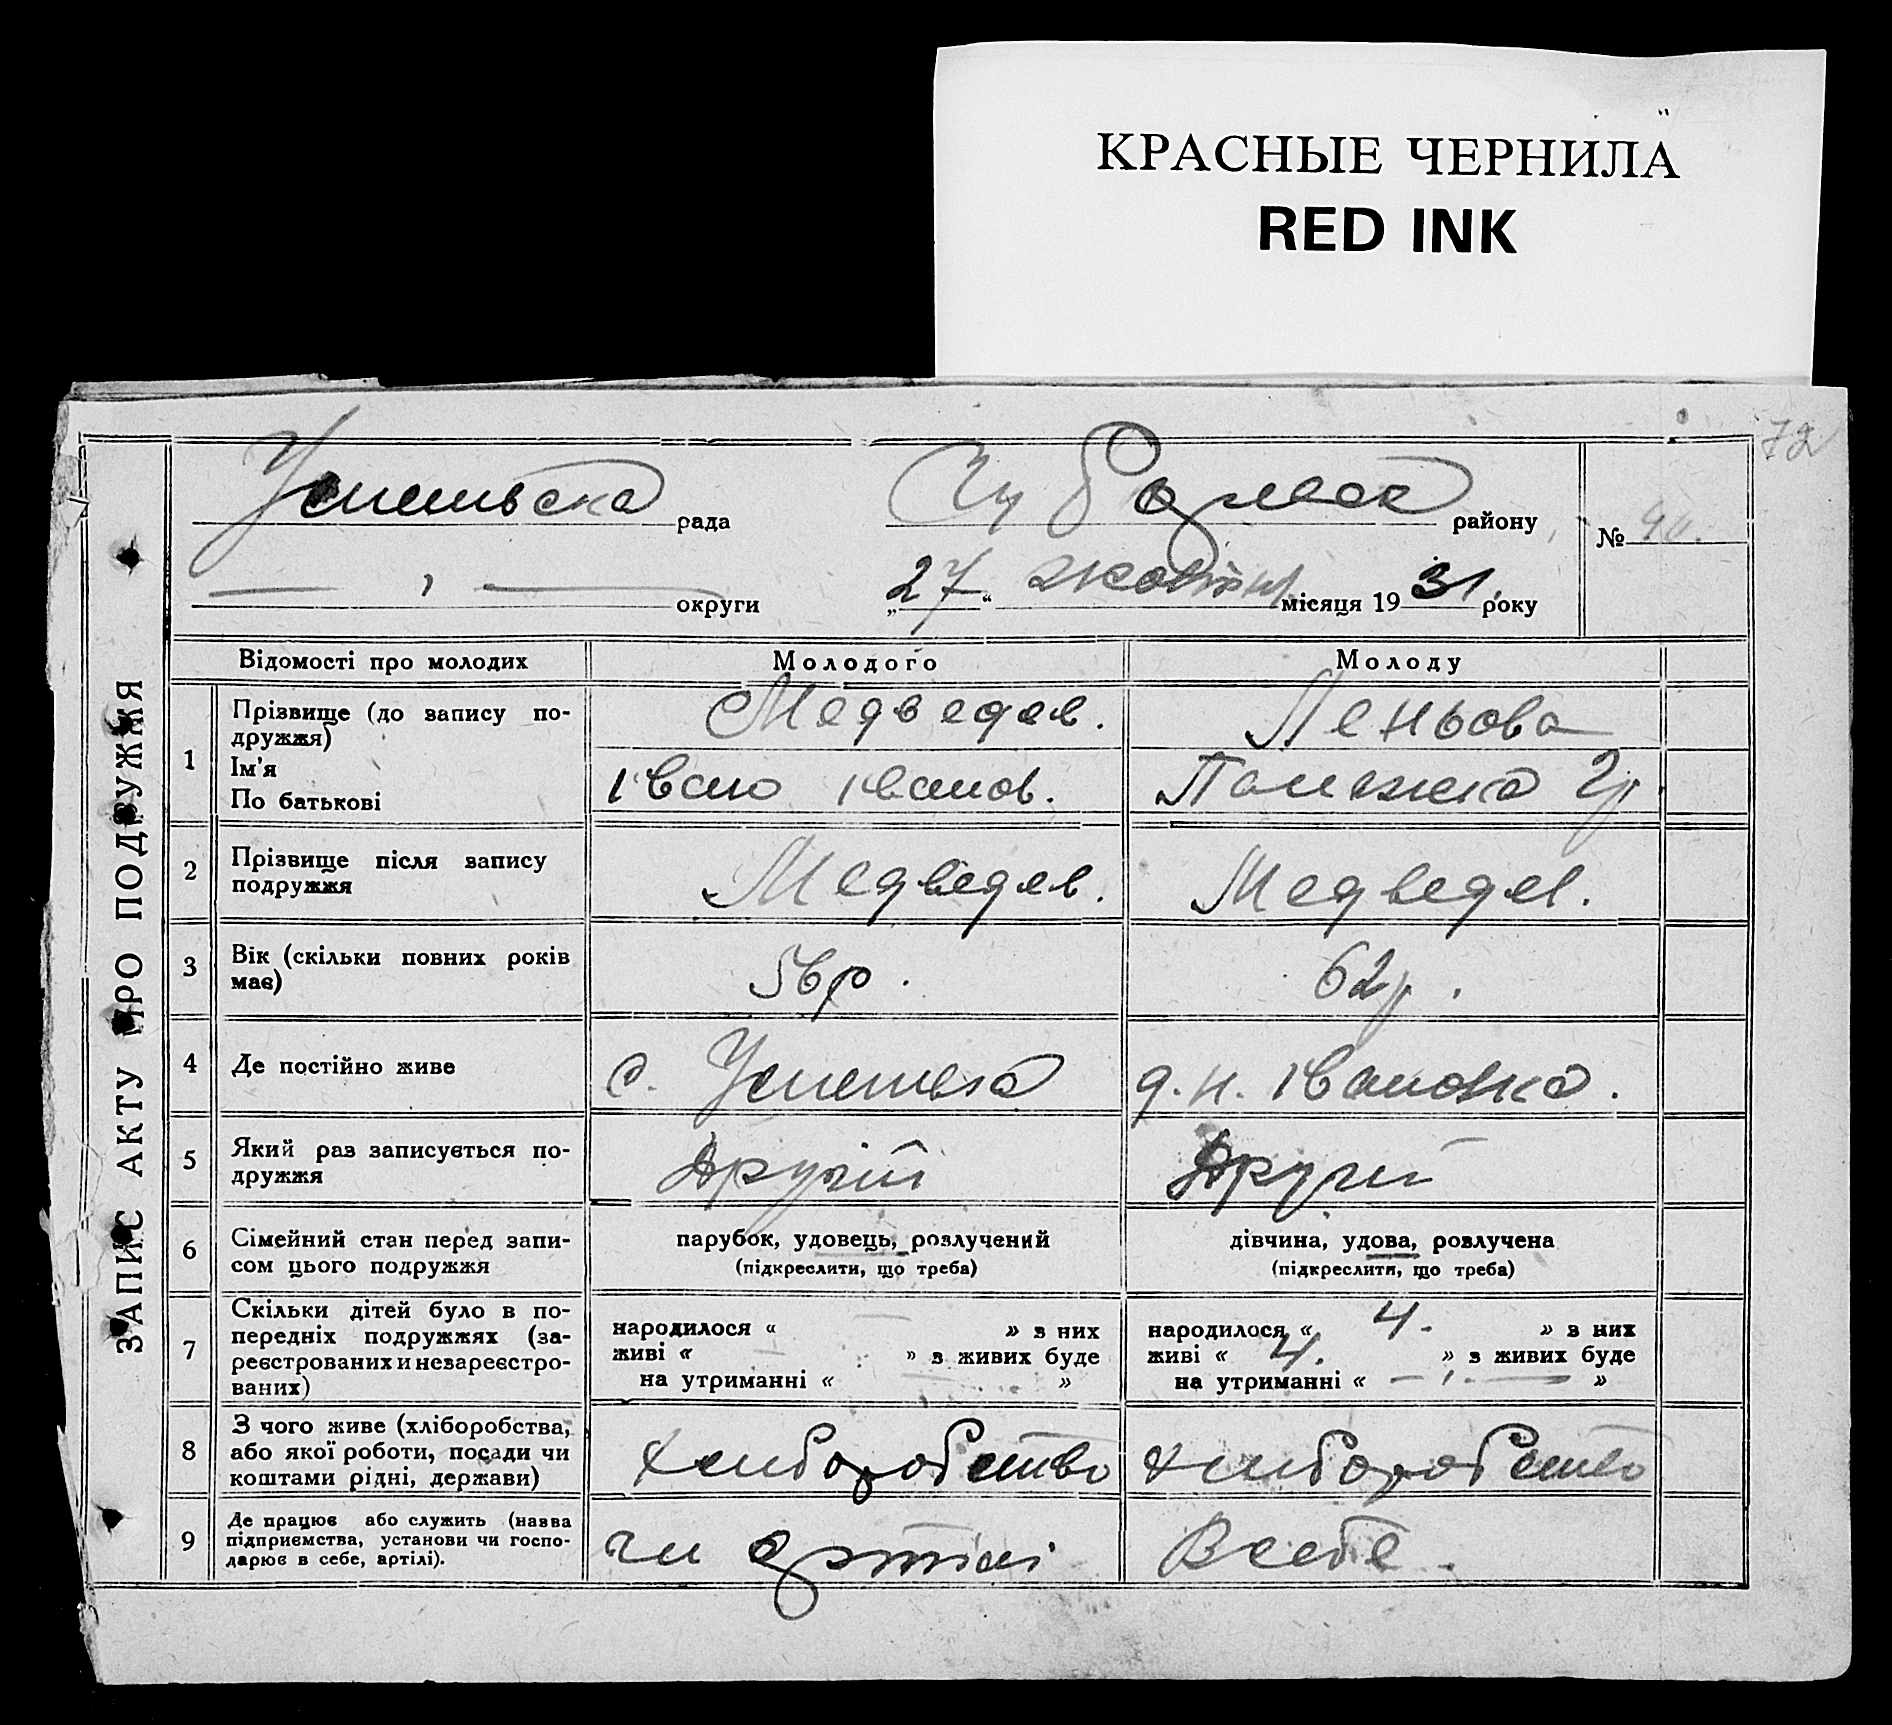 КРАСНЫЕ ЧЕРНИЛА
RED INK
72
ЗАПИС АКТУ ПРО ПОДРУЖЖЯ
Успенська рада
району
№ 90.
округи
„27“ жовтня місяця 1931. року
Відомості про молодих Молодого Молоду
1 Прізвище (до запису по-
дружжя)
Ім'я
По батькові
Медведєв. Пеньова
Іван Іванов. Пелажка Гр.
2 Прізвище після запису
подружжя
Медведєв. Медведєв.
3 Вік (скільки повних років
має)
56р. 62р.
4 Де постійно живе
с. Успенька д.н. Івановка.
5 Який раз записується по-
дружжя
Другій Другий
6 Сімейний стан перед запи-
сом цього подружжя
парубок, удовець, розлучений
(підкреслити, що треба)
дівчина, удова, розлучена
(підкреслити, що треба)
7 Скільки дітей було в по-
передніх подружжях (за-
реєстрованих и незареєстро-
ваних)
народилося « » з них
живі « » з живих буде
на утриманні « »
народилося « 4. » з них
живі « 4. » з живих буде
на утриманні « — „ — »
8 З чого живе (хліборобства,
або якої роботи, посади чи
коштами рідні, держави)
хлиборобство хлиборобство
9 Де працює або служить (назва
підприємства, установи чи госпо-
дарює в себе, артілі).
чл артілі В себе.